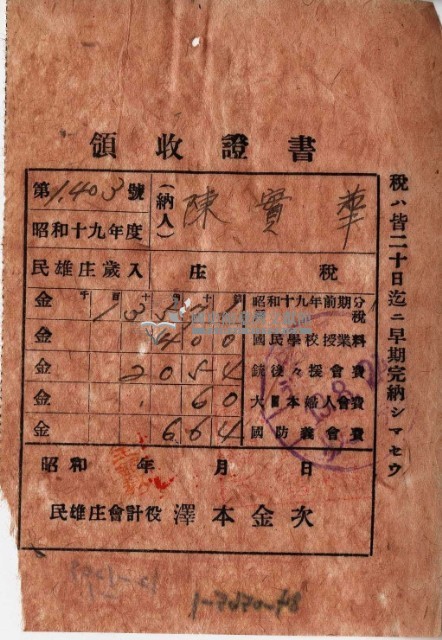 領收證書
第1,403號
(納人) 陳實華
昭和十九年度
民雄庄歲入 庄稅
金 千百十圓十錢 昭和十九年前期分稅
金 400 國民學校授業料
金 2054 銃後々援會費
金 60 大日本婦人會費
金 664 國防義會費
昭和 年 月 日
民雄庄會計役 澤本金次
稅ハ皆二十日迄ニ早期完納シマセウ